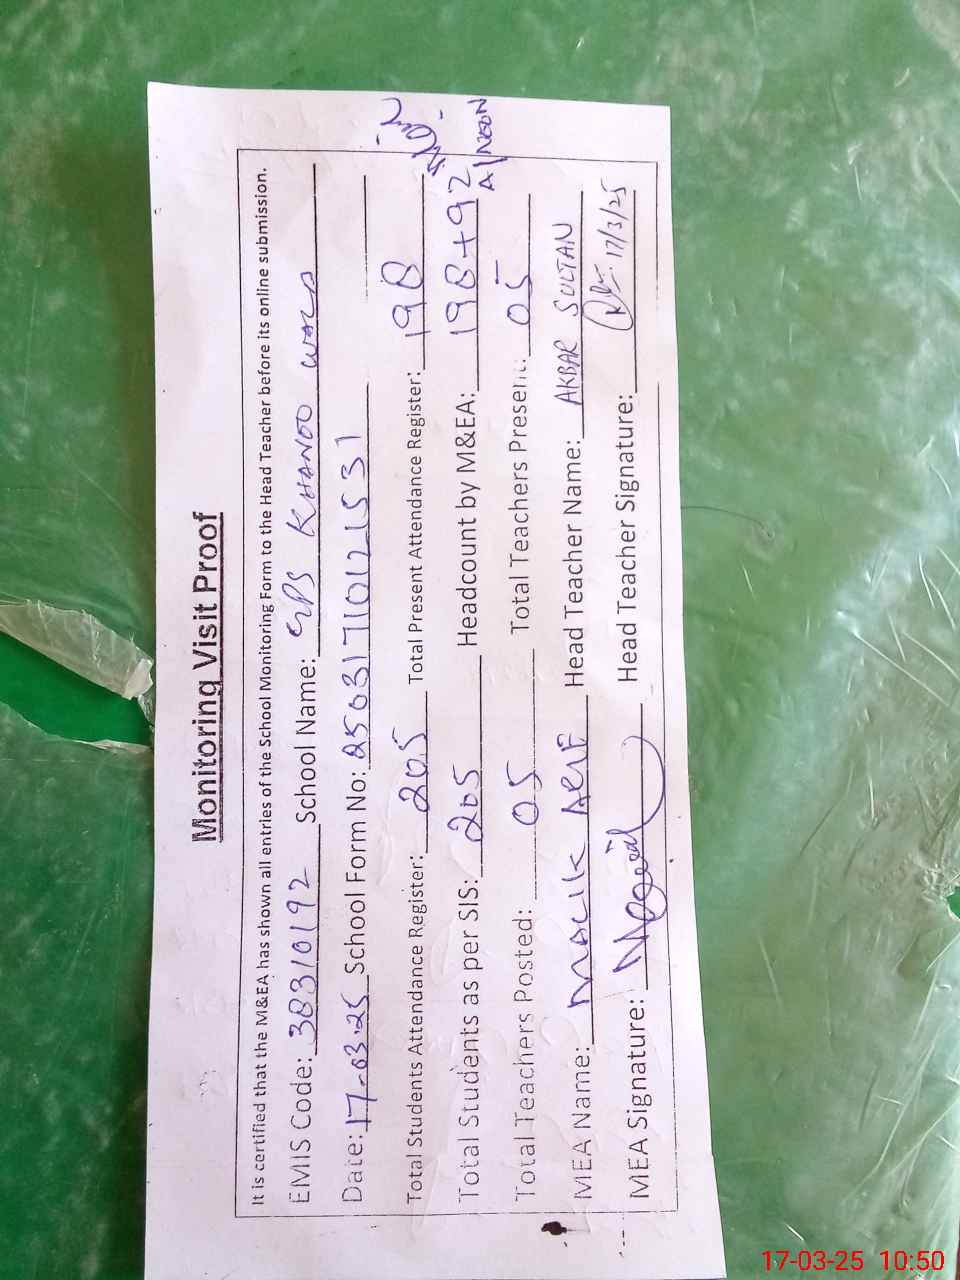 Monitoring Visit Proof
It is certified that the M&EA has shown all entries of the School Monitoring Form to the Head Teacher before its online submission.
EMIS Code: 38310192 School Name: GPS KHANOO WALA
Date: 17-03-25 School Form No: 250317101121531
Total Students Attendance Register: 205 Total Present Attendance Register: 198
Total Students as per SIS: 205 Headcount by M&EA: 198+92
Total Teachers Posted: 05 Total Teachers Present: 05
MEA Name: MALIK ARIF Head Teacher Name: AKBAR SULTAN
MEA Signature: Head Teacher Signature: 17/3/25
17-03-25 10:50